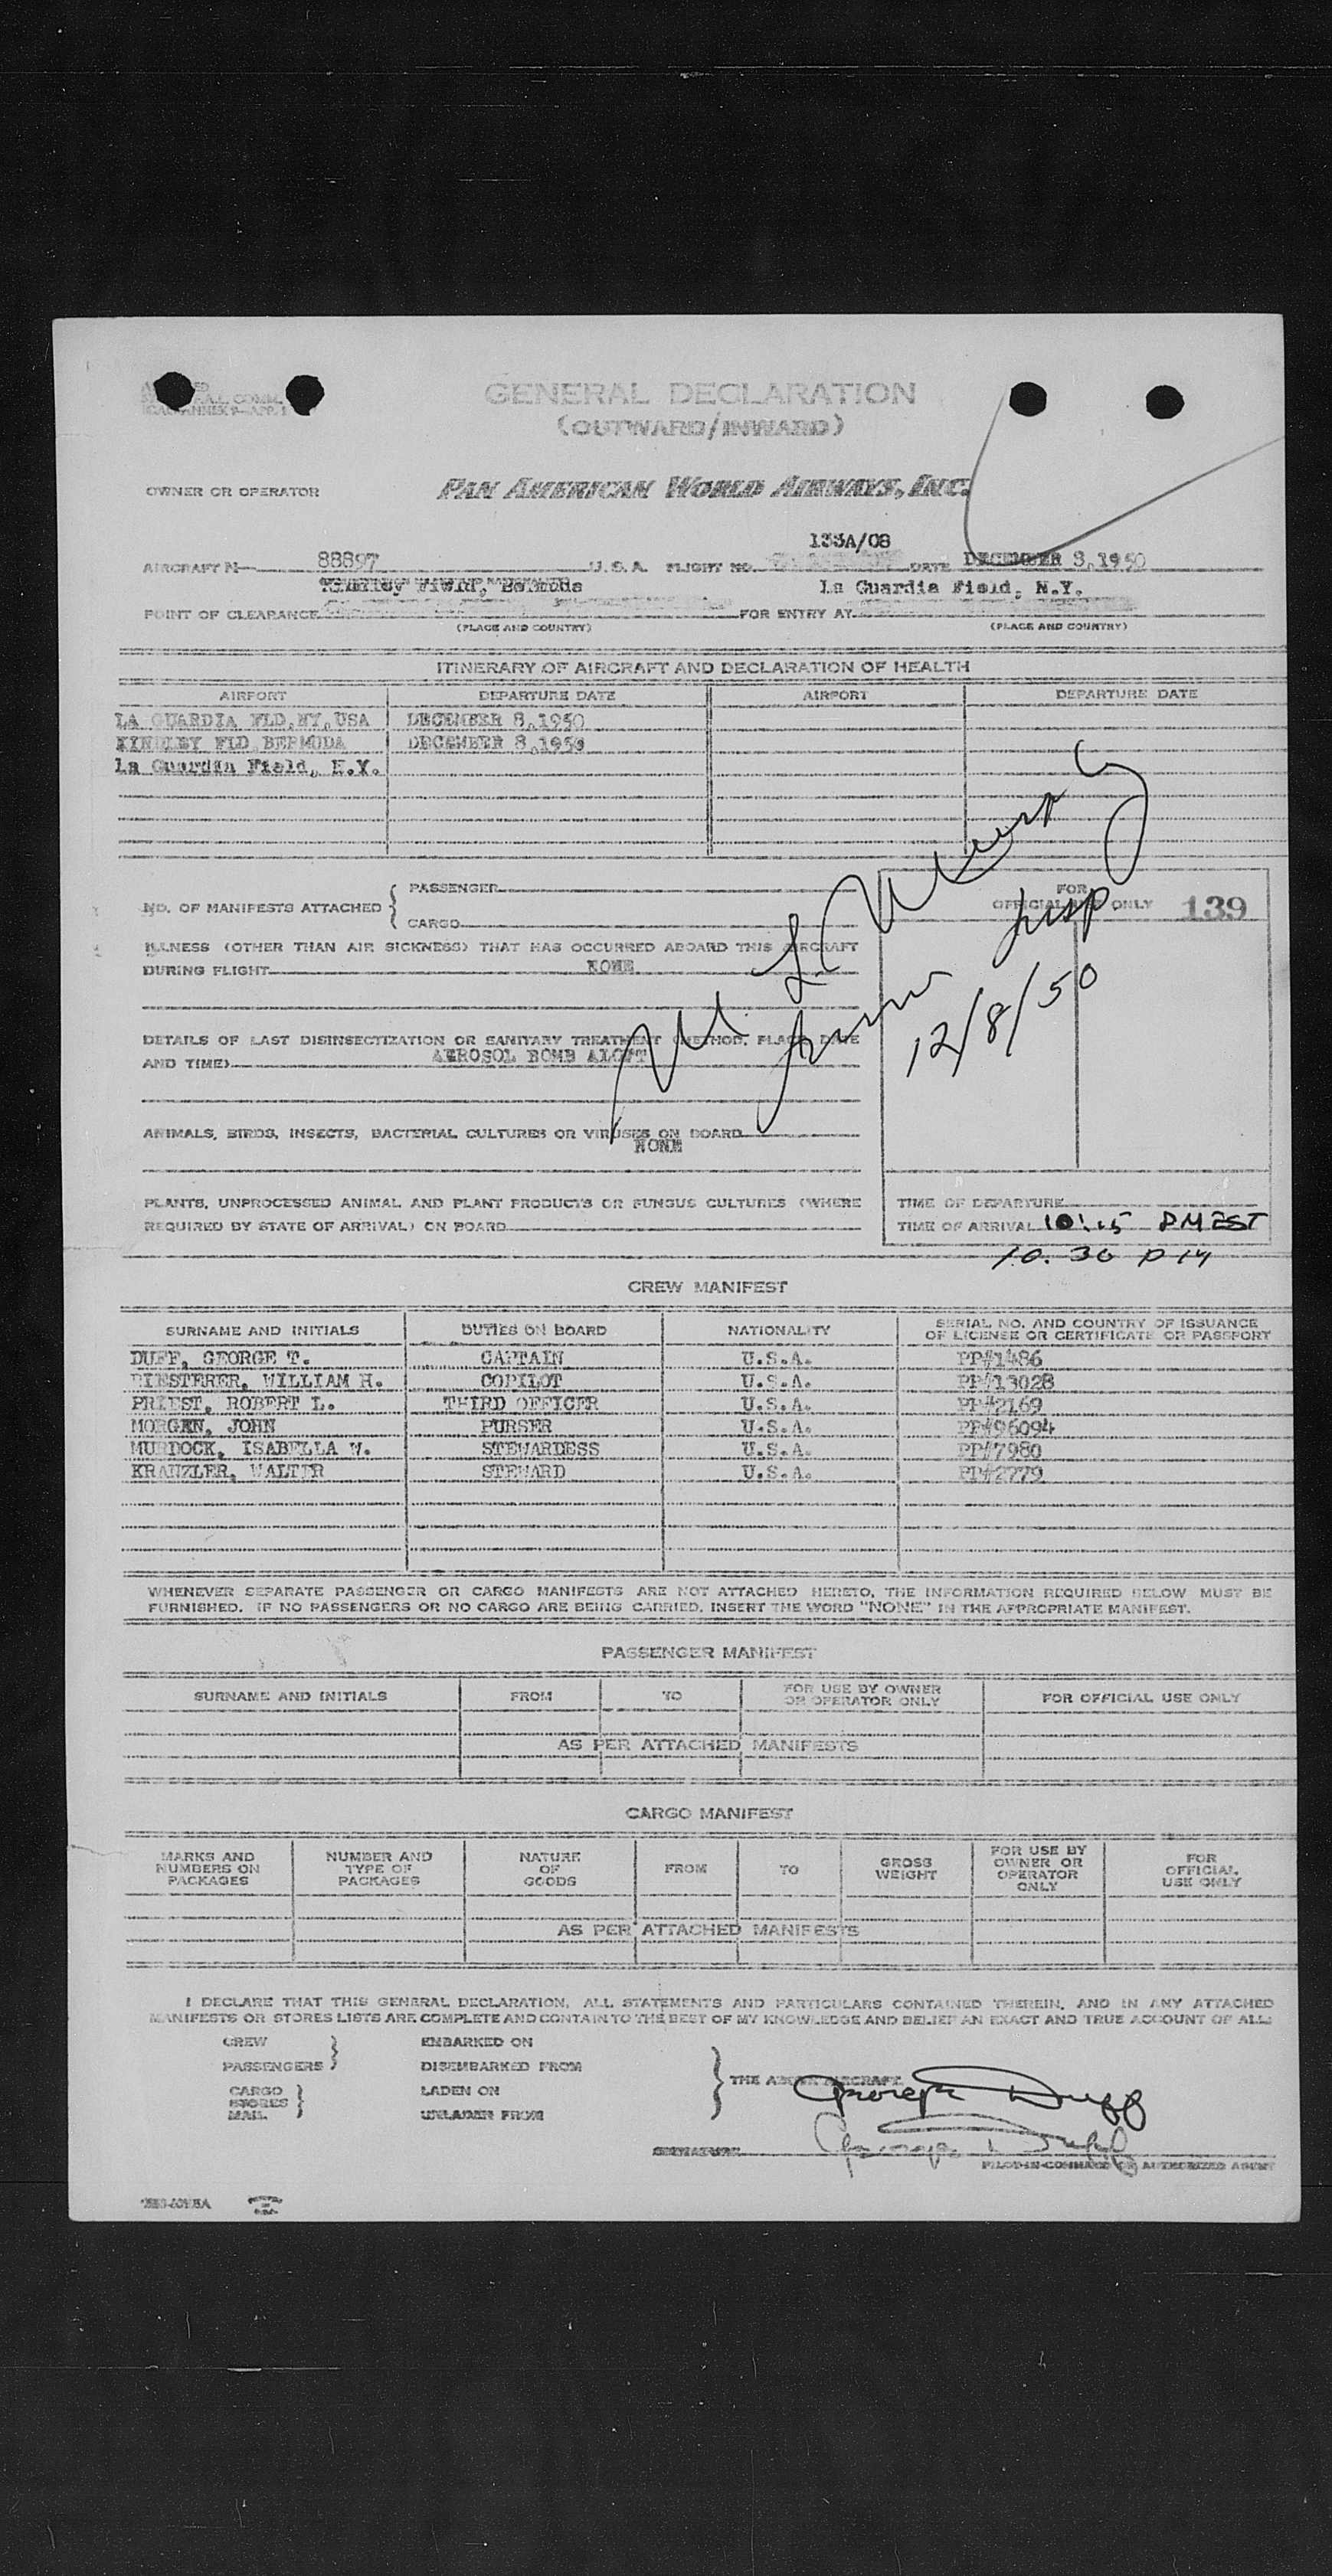 GENERAL DECLARATION
(OUTWARD/INWARD)
OWNER OR OPERATOR PAN AMERICAN WORLD AIRWAYS, INC.
133A/08
AIRCRAFT N— 88897 U.S.A. FLIGHT NO. DATE DECEMBER 8, 1950
Kindley Field, Bermuda La Guardia Field, N.Y.
POINT OF CLEARANCE FOR ENTRY AT
(PLACE AND COUNTRY) (PLACE AND COUNTRY)
ITINERARY OF AIRCRAFT AND DECLARATION OF HEALTH
AIRPORT DEPARTURE DATE AIRPORT DEPARTURE DATE
LA GUARDIA FLD,NY,USA DECEMBER 8,1950
KINDLEY FLD BERMUDA DECEMBER 8,1950
La Guardia Field, N.Y.
NO. OF MANIFESTS ATTACHED { PASSENGER
CARGO
FOR
OFFICIAL USE ONLY 139
ILLNESS (OTHER THAN AIR SICKNESS) THAT HAS OCCURRED ABOARD THIS AIRCRAFT
DURING FLIGHT NONE
12/8/50
DETAILS OF LAST DISINSECTIZATION OR SANITARY TREATMENT (METHOD, PLACE, DATE
AND TIME) AEROSOL BOMB ALOFT
ANIMALS, BIRDS, INSECTS, BACTERIAL CULTURES OR VIRUSES ON BOARD
NONE
PLANTS, UNPROCESSED ANIMAL AND PLANT PRODUCTS OR FUNGUS CULTURES (WHERE
REQUIRED BY STATE OF ARRIVAL) ON BOARD
TIME OF DEPARTURE
TIME OF ARRIVAL 10:15 PM EST
10.30 PM
CREW MANIFEST
SURNAME AND INITIALS DUTIES ON BOARD NATIONALITY SERIAL NO. AND COUNTRY OF ISSUANCE OF LICENSE OR CERTIFICATE OR PASSPORT
DUFF, GEORGE T. CAPTAIN U.S.A. PP#1486
BIESTERER, WILLIAM H. COPILOT U.S.A. PP#13028
PRIEST, ROBERT L. THIRD OFFICER U.S.A. PP#2169
MORGAN, JOHN PURSER U.S.A. PP#96094
MURDOCK, ISABELLA W. STEWARDESS U.S.A. PP#7980
KRANZLER, WALTER STEWARD U.S.A. PP#2779
WHENEVER SEPARATE PASSENGER OR CARGO MANIFESTS ARE NOT ATTACHED HERETO, THE INFORMATION REQUIRED BELOW MUST BE
FURNISHED. IF NO PASSENGERS OR NO CARGO ARE BEING CARRIED, INSERT THE WORD "NONE" IN THE APPROPRIATE MANIFEST.
PASSENGER MANIFEST
SURNAME AND INITIALS FROM TO FOR USE BY OWNER OR OPERATOR ONLY FOR OFFICIAL USE ONLY
AS PER ATTACHED MANIFESTS
CARGO MANIFEST
MARKS AND NUMBERS ON PACKAGES NUMBER AND TYPE OF PACKAGES NATURE OF GOODS FROM TO GROSS WEIGHT FOR USE BY OWNER OR OPERATOR ONLY FOR OFFICIAL USE ONLY
AS PER ATTACHED MANIFESTS
I DECLARE THAT THIS GENERAL DECLARATION, ALL STATEMENTS AND PARTICULARS CONTAINED THEREIN, AND IN ANY ATTACHED
MANIFESTS OR STORES LISTS ARE COMPLETE AND CONTAIN TO THE BEST OF MY KNOWLEDGE AND BELIEF AN EXACT AND TRUE ACCOUNT OF ALL:
CREW EMBARKED ON
PASSENGERS DISEMBARKED FROM
THE ABOVE AIRCRAFT.
CARGO LADEN ON
STORES
MAIL UNLADEN FROM
George Duff
George T Duff
SIGNATURE
PILOT-IN-COMMAND OR AUTHORIZED AGENT